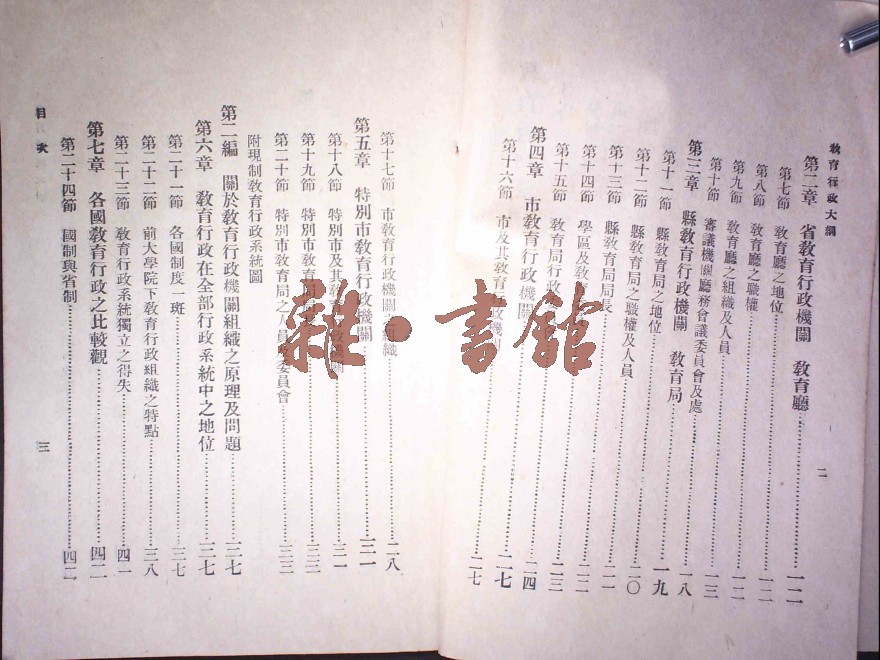 教育行政大綱
第二章　省教育行政機關　教育廳……一二
第七節　教育廳之地位……一二
第八節　教育廳之職權……一二
第九節　教育廳之組織及人員……一二
第十節　審議機關廳務會議委員會及處……一三
第三章　縣教育行政機關　教育局……一八
第十一節　縣教育局之地位……一九
第十二節　縣教育局之職權及人員……二〇
第十三節　縣教育局局長……二一
第十四節　學區及教育……二二
第十五節　教育局行政……二三
第四章　市教育行政機關……二四
第十六節　市及其教育行政機關……二七
二
第十七節　市教育行政機關　組織……二八
第五章　特別市教育行政機關……三一
第十八節　特別市及其教育行政機關……三一
第十九節　特別市教育局……三三
第二十節　特別市教育局之人員及委員會……三三
附現制教育行政系統圖
第二編　關於教育行政機關組織之原理及問題……三七
第六章　教育行政在全部行政系統中之地位……三七
第二十一節　各國制度一斑……三七
第二十二節　前大學院下教育行政組織之特點……三八
第二十三節　教育行政系統獨立之得失……四一
第七章　各國教育行政之比較觀……四二
第二十四節　國制與省制……四二
目次
三
雜·書館